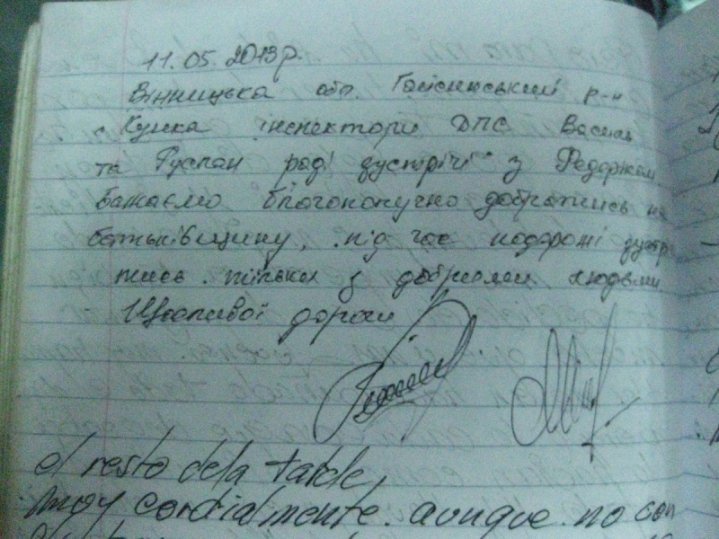 11.05.2013р.
Вінницька обл. Гайсинський р-н
с. Кунка інспектори ДПС Василь
та Руслан раді зустрічі з
бажаємо благополучно добратись на
батьківщину, під час подорожі
тись тільки з добрими людьми
Щасливої дороги
el resto de la tarde,
muy cordialmente. aunque no con